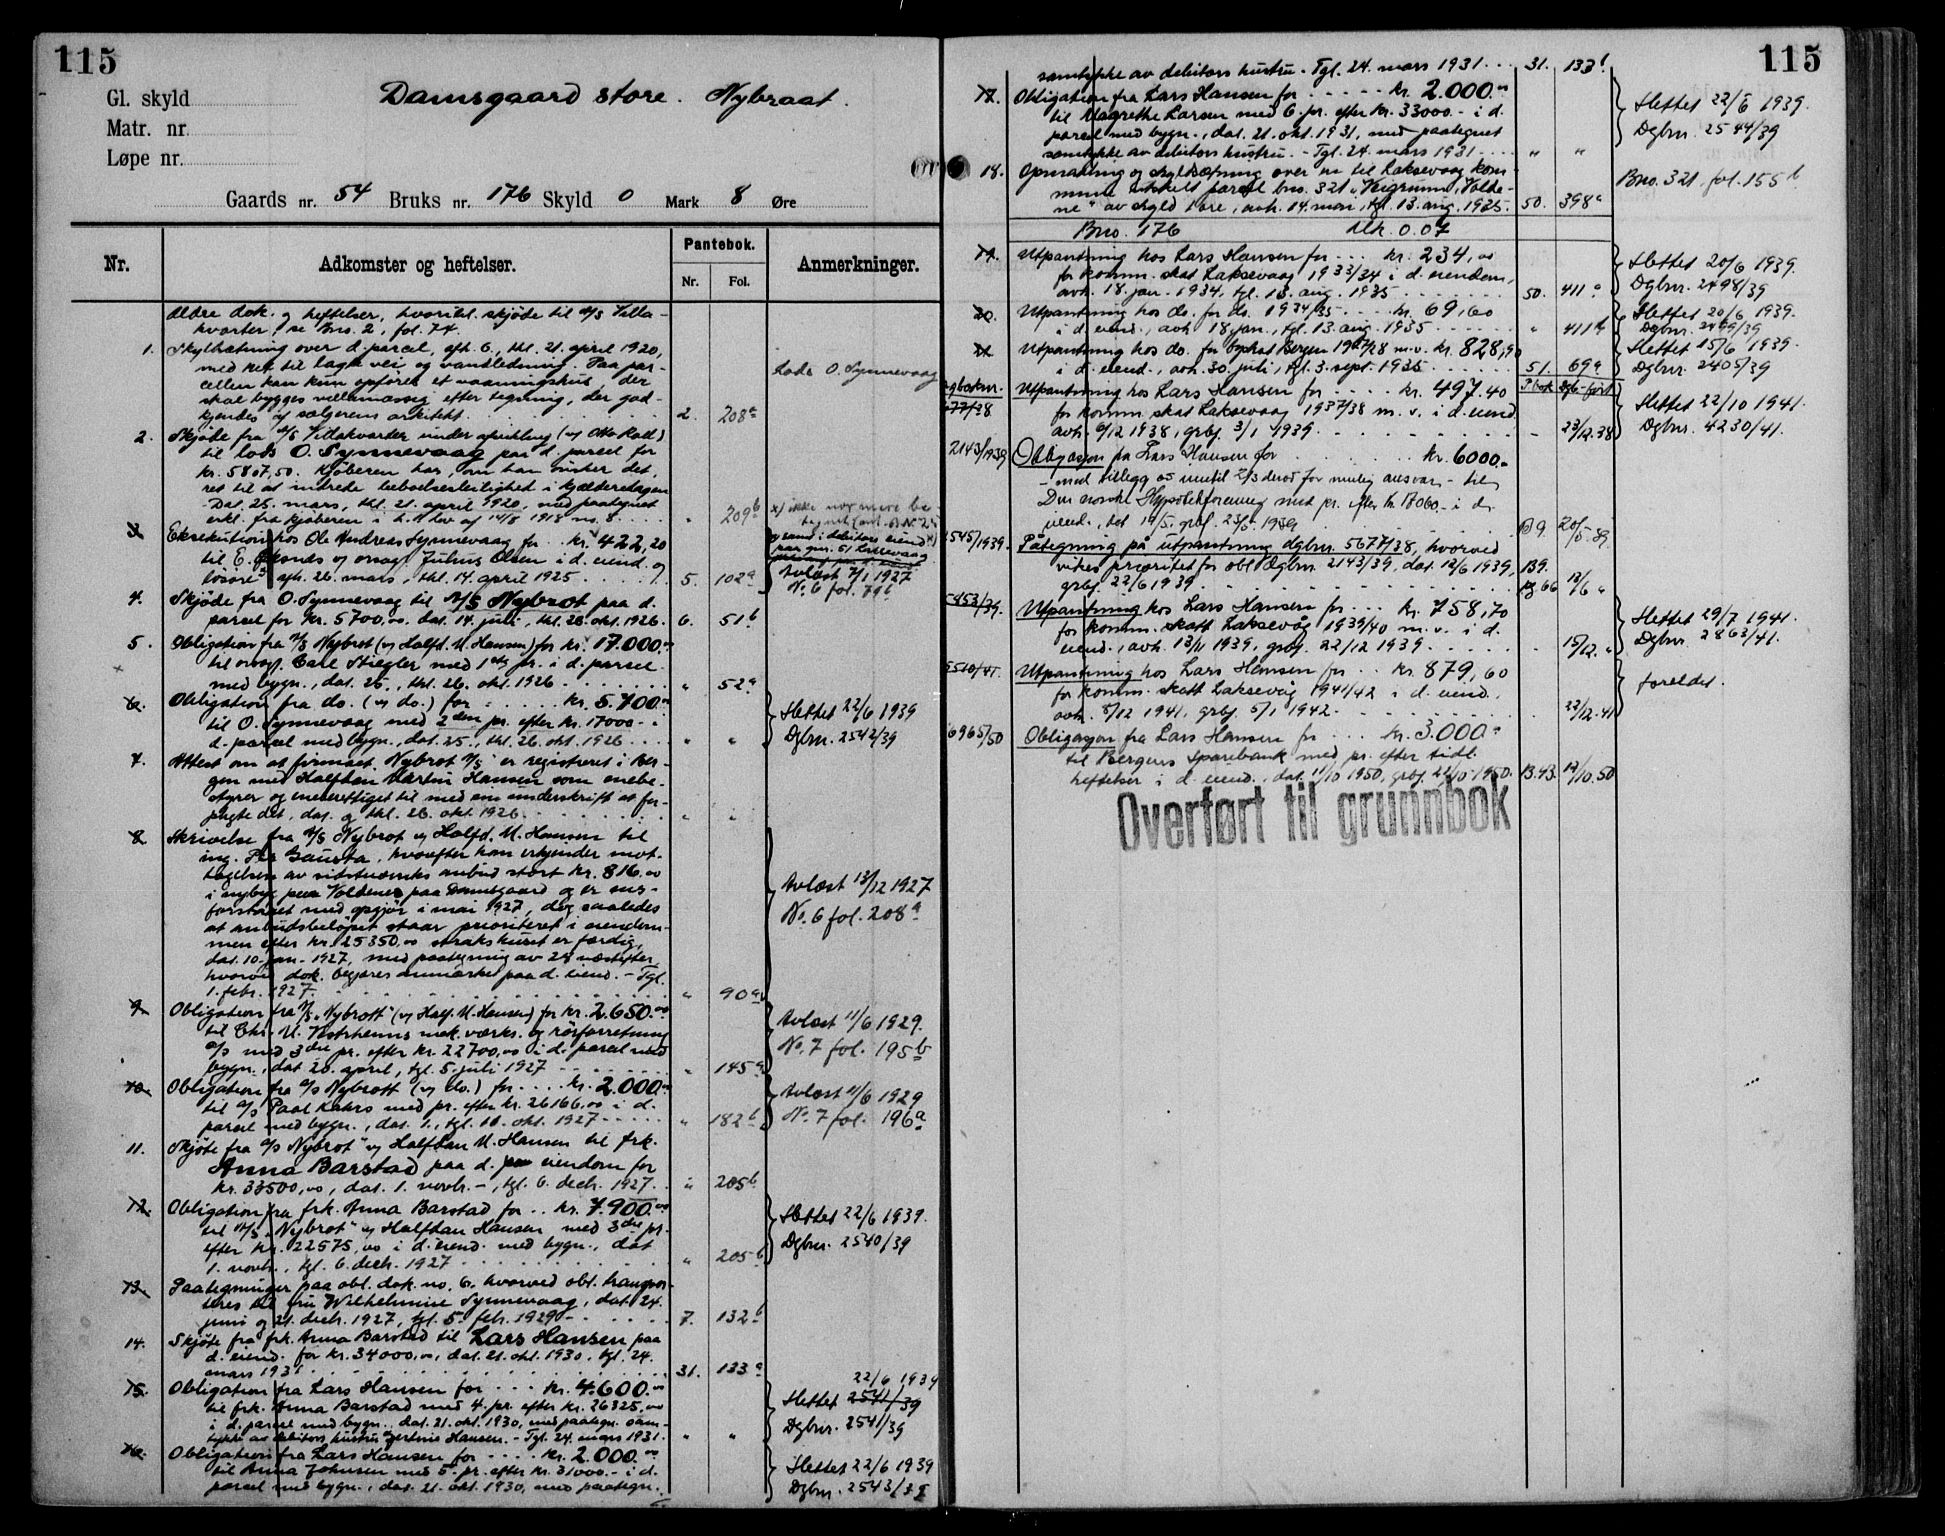 115
Gl. skyld
Damsgaard store. Nybraat.
Matr. nr.
Løpe nr.
Gaards nr. 54 Bruks nr. 176 Skyld 0 Mark 8 Øre
Nr. Adkomster og heftelser. Pantebok. Nr. Fol. Anmerkninger.
Ældre dok. og heftelser, hvoribl. skjøde til A/S Villa-
kvarter, se Bno. 2, fol. 74.
1. Skyldsætning over d. parcel, afh. 6., thl. 21. april 1920,
med ret til lagt vei og vandledning. Paa par-
cellen kan kun opføres et vaaningshus, der
skal bygges villamæssig efter tegning, der god-
kjendes af sælgerens arkitekt. 2. 208a
Lods O. Synnevaag
2. Skjøde fra A/S Villakvarter under afvikling (v/ Otto Roll)
til lods O. Synnevaag paa d. parcel for
kr. 5807,50. Kjøberen har, om han ønsker det,
ret til at indrede beboelsesleilighet i kjælderetagen
- Dat. 25. mars, thl. 21. april 1920, med paategnet
erkl. fra kjøberen i h. t. lov af 14/8 1918 no. 8. " 209b
3. Eksekution hos Ole Andreas Synnevaag for kr. 422,20
til E. og orsag. Julius Olsen i d. eiend. og
løsøre afh. 26. mars, thl. 14. april 1925. 5. 102a
Avlæst 7/1 1927
No. 6 fol. 79b
4. Skjøde fra O. Synnevaag til A/S Nybrot paa d.
parcel for kr. 5700,00, dat. 14. juli, thl. 28. okt. 1926. 6. 51b
5. Obligation fra A/S Nybrot (v/ Halfd. M. Hansen) for kr. 17.000.00
til orsagf. Carl Stiegler med 1ste pr. i d. parcel
med bygn., dat. 25., thl. 26. okt. 1926 " 52a
6. Obligation fra do. (v/ do.) for kr. 5.700.00
til O. Synnevaag med 2den pr. efter kr. 17000 - i
d. parcel med bygn., dat. 25., thl. 26. okt. 1926 " "
Slettet 22/6 1939
Dgbnr. 2542/39
7. Attest om at firmaet "Nybrot A/S" er registreret i Ber-
gen med Halfdan Martin Hansen som enebe-
styrer og eneberettiget til med sin underskrift at for-
pligte det, dat. og thl. 26. okt. 1926. " "
8. Skrivelse fra A/S Nybrot v/ Halfd. M. Hansen til
ing. Per Gausta, hvorefter han erkjender mot-
tagelsen av sidstnævnts anbud stort kr. 816.00
i nybyg paa Voldene paa Damsgaard og er ind-
forstaaet med opgjør i mai 1927, dog saaledes
at anbudsbeløpet staar prioriteret i eiendom-
men efter kr. 25350,00 straks huset er færdig,
dat. 10. jan. 1927, med paategning av 24 næstefter,
hvorved dok. begjæres anmærket paa d. eiend. - Tgl.
1. febr. 1927. " 90a
Avlæst 13/12 1927
No. 6 fol. 208a
9. Obligation fra A/S "Nybrott" (v/ Half. M. Hansen) for kr. 2.650.00
til Chr. U. Vestrheims mek. værks. og rørforretning
A/S med 3die pr. efter kr. 22700,00 i d. parcel med
bygn., dat. 20. april, tgl. 5. juli 1927 " 145a
Avlæst 11/6 1929.
No. 7 fol. 195b
10. Obligation fra A/S Nybrott (v/ do.) for kr. 2.000.00
til A/S Paal Kahrs med pr. efter kr. 26166,00 i d.
parcel med bygn., dat. 1., tgl. 11. okt. 1927 " 182b
Avlæst 11/6 1929
No. 7 fol. 196a
11. Skjøte fra A/S "Nybrot" v/ Halfdan M. Hansen til frk.
Anna Barstad paa d. eiendom for
kr. 33500,00, dat. 1. novbr. -, tgl. 6. decbr. 1927. " 205b
12. Obligation fra frk. Anna Barstad for kr. 7.900.00
til A/S "Nybrot" v/ Halfdan Hansen med 3die pr.
efter kr. 22575,00 i d. eiend. med bygn., dat.
1. novbr., tgl. 6. decbr. 1927 " 205b
Slettet 22/6 1939.
Dgbnr. 2540/39
13. Paategninger paa obl. dok. no. 6, hvorved obl. transpor-
teres til fru Wilhelmine Synnevaag, dat. 24.
juni og 21. decbr. 1927, tgl. 5. febr. 1929 7. 132b
14. Skjøte fra frk. Anna Barstad til Lars Hansen paa
d. eiend. for kr. 34000,00, dat. 21. okt. 1930, tgl. 24.
mars 1931 31. 133a
15. Obligation fra Lars Hansen for kr. 4.600.00
til frk. Anna Barstad med 4. pr. efter kr. 26325,00
i d. parcel med bygn., dat. 21. okt. 1930, med paategn. sam-
tykke av debitors hustru Gertine Hansen. - Tgl. 24. mars 1931. " "
22/6 1939
Slettet 2541/39
Dgbnr. 2541/39
16. Obligation fra Lars Hansen for kr. 2.000.00
til Anna Johnsen med 5. pr. efter kr. 31000.- i d.
parcel med bygn., dat. 21. okt. 1930, med paategn.
Slettet 22/6 1939
Dgbnr. 2543/39
115
samtykke av debitors hustru. - Tgl. 24. mars 1931 31. 133b
17. Obligation fra Lars Hansen for kr. 2.000.00
til Magrethe Larsen med 6. pr. efter kr. 33000.- i d.
parcel med bygn., dat. 21. okt. 1931, med paategnet
samtykke av debitors hustru. - Tgl. 24. mars 1931 " "
Slettet 22/6 1939.
Dgbnr. 2544/39
18. Opmaaling og skyldsætning over en til Laksevaag kom-
mune utskilt parcel bno. 321 "Veigrunn, Volde-
ne" av skyld 1 øre, avh. 14. mai, tgl. 13. aug. 1935. 50. 398a
Bno. 321, fol. 155b
Bno. 176 Mk. 0.07
19. Utpantning hos Lars Hansen for kr. 234,00
for komm. skat Laksevaag 1933/34 i d. eiendom,
avh. 18. jan. 1934, tgl. 13. aug. 1935 50. 411a
Slettet 20/6 1939.
Dgbnr. 2498/39
20. Utpantning hos do. for do. 1934/35 kr. 69,60
i d. eiend., avh. 18. jan., tgl. 13. aug. 1935 " 411b
Slettet 20/6 1939.
Dgbnr. 2499/39
21. Utpantning hos do. for byskat Bergen 1927/28 m.v. kr. 828,90
i d. eiend., avh. 30. juli, tgl. 3. sept. 1935 51. 69a
Slettet 15/6 1939.
Dgbnr. 2405/39
Dagboknr. P.bok Dgb.-ført
5677/38 Utpantning hos Lars Hansen for kr. 497.40
for komm. skat Laksevaag 1937/38 m. v. i d. eiend.
avh. 9/12 1938, grbf. 3/1 1939 - 23/12.38
Slettet 22/10 1941.
Dgbnr. 4230/41.
2143/1939 Obligasjon fra Lars Hansen for kr. 6000.-
- med tillegg av inntil 2/3 derav for mulig ansvar - til
Den norske Hypotekforening med pr. efter kr. 17000.- i d.
eiend., dat. 19/5, grbf. 23/5 1939 B 9. 20/5-39.
2545/1939. Påtegning på utpantning dgbnr. 5677/38, hvorved
vikes prioritet for obl. dgbnr. 2143/39, dat. 12/6 1939, B9.
grbf. 22/6 1939 pg 66 12/6 "
5453/39. Utpantning hos Lars Hansen for kr. 758,70
for komm. skatt Laksevåg 1939/40 m. v. i d.
eiend., avh. 13/11 1939, grbf. 22/12 1939 15/12. "
Slettet 29/7 1941.
Dgbnr. 2863/41.
5510/41. Utpantning hos Lars Hansen for kr. 879,60
for komm. skatt Laksevåg 1941/42 i d. eiend.,
avh. 5/12 1941, grbf. 5/1 1942. 22/12.41
foreldet.
6965/50 Obligasjon fra Lars Hansen for kr. 3.000.-
til Bergens Sparebank med pr. efter tidl.
heftelser i d. eiend., dat. 11/10 1950, grbf. 21/10 1950. B.43. 12/10.50
Overført til grunnbok